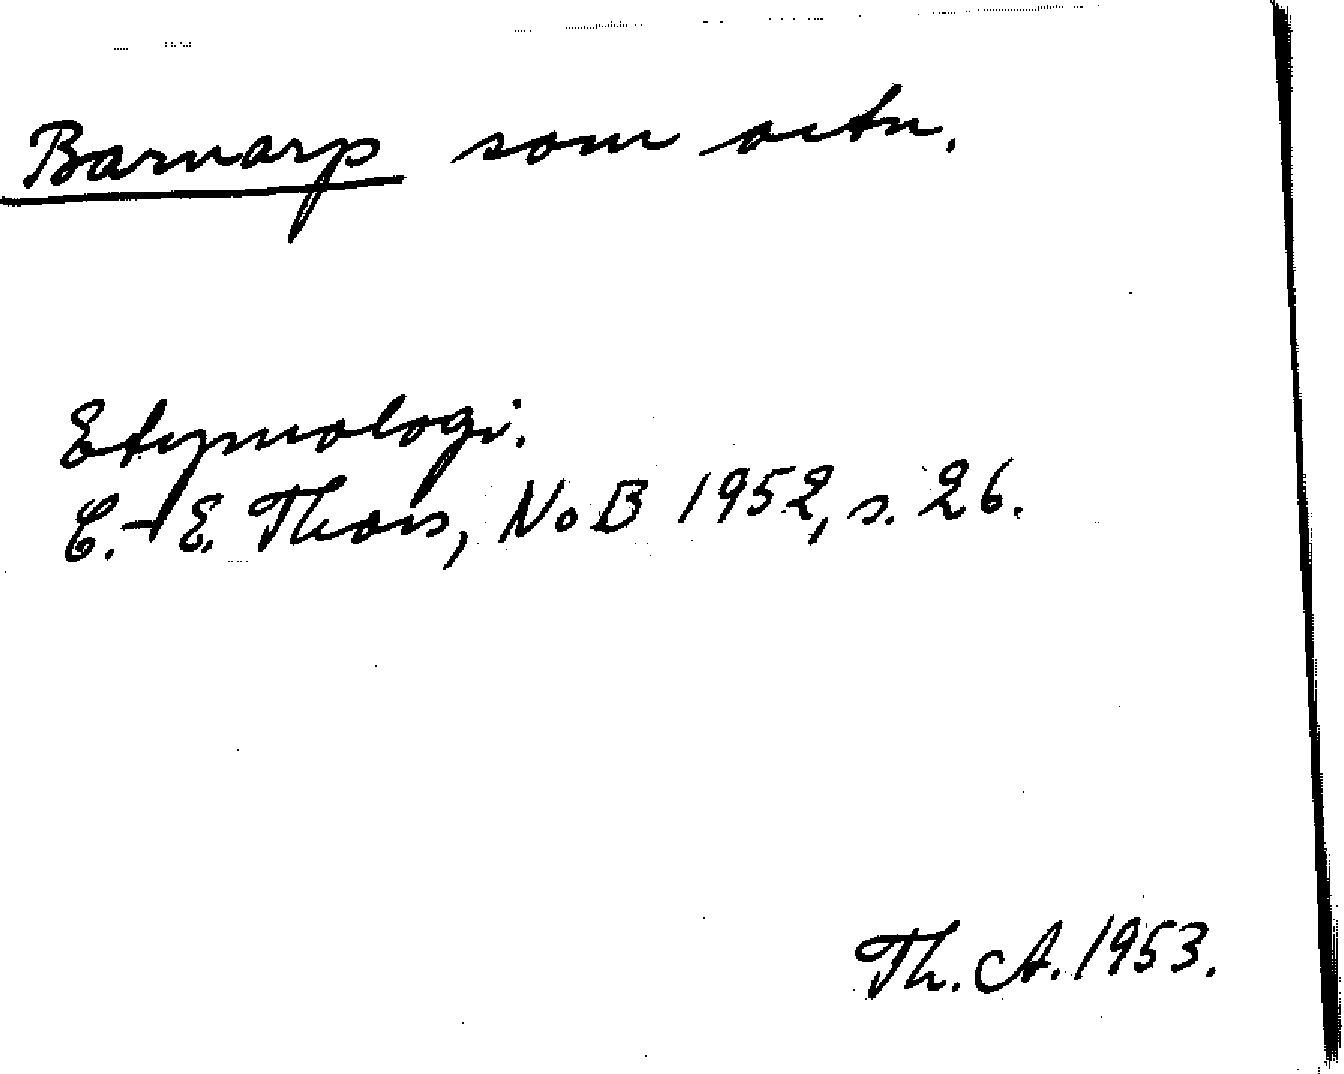 Barnarp som ortn.
Etymologi:
C.-E. Thors, NoB 1952, s. 26.
Th. A. 1953.